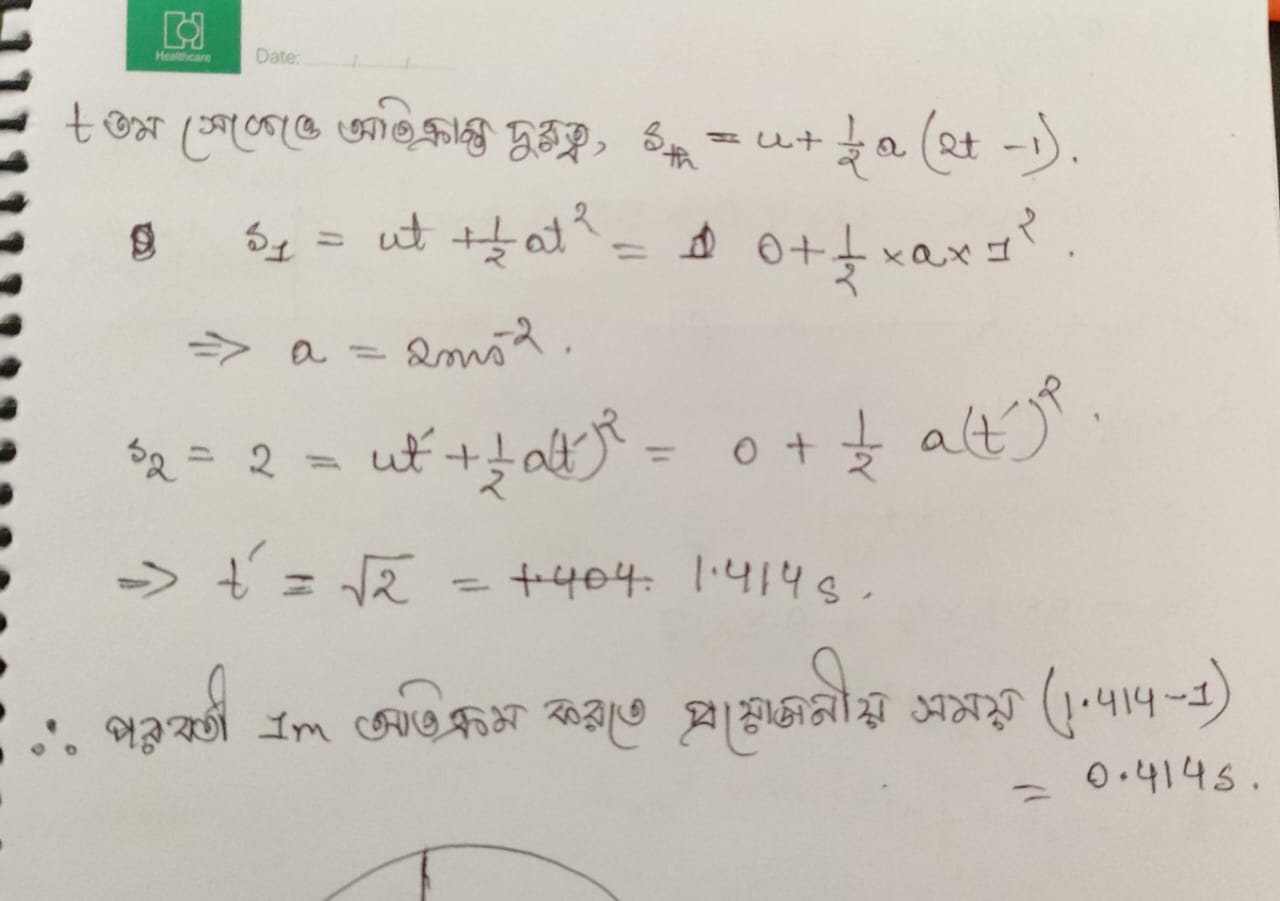 Healthcare
Date:
t তম সেকেন্ডে অতিক্রান্ত দুরত্ব, Sth = u + 1/2 a (2t - 1).
S1 = ut + 1/2 at² = 0 + 1/2 × a × 1².
⇒ a = 2ms⁻².
S2 = 2 = ut′ + 1/2 a(t′)² = 0 + 1/2 a(t′)².
⇒ t′ = √2 = 1.414 s.
∴ পরবর্তী 1m অতিক্রম করতে প্রয়োজনীয় সময় (1.414-1)
= 0.414 s.